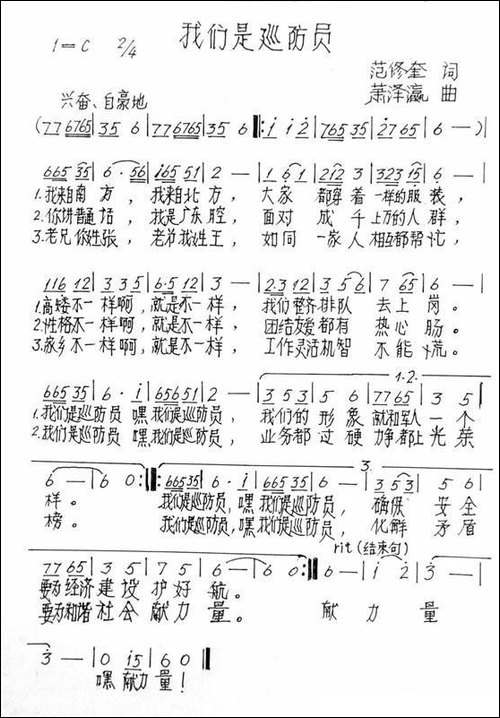 我们是巡防员
1=C 2/4
范修奎 词
萧泽瀛 曲
兴奋、自豪地
(77 6765 | 35 6 | 77 6765 | 35 6 :|: i i 2 | 765 35 | 2765 | 6 — )|
665 35 | 6 · 56 | i65 51 | 2 — | 1 6 1 | 212 3 | 323 15 | 6 — |
1.我来自南方，我来自北方，大家都穿着一样的服装，
2.你讲普通话，我是广东腔，面对成千上万的人群，
3.老兄你姓张，老弟我姓王，如同一家人相互都帮忙，
116 12 | 3 3 5 | 6·5 12 | 3 — | 2·3 12 | 3 5 6 | 7 65 | 6 — |
1.高矮不一样啊，就是不一样，我们整齐排队去上岗。
2.性格不一样啊，就是不一样，团结友爱都有热心肠。
3.家乡不一样啊，就是不一样，工作灵活机智不能慌。
1.2.
665 35 | 6 · i | 656 51 | 2 — | 3 5 3 | 5 6 | 77 65 | 3 5 |
1.我们是巡防员嘿我们是巡防员，我们的形象就和军人一个
2.我们是巡防员嘿我们是巡防员，业务都过硬力争都上光荣
3.
6 — | 6 0 :|: 665 35 | 6 · i | 665 35 | 6 — | 3 5 3 | 5 6 |
样。我们是巡防员，嘿我们是巡防员，确保安全
榜。我们是巡防员，嘿我们是巡防员，化解矛盾
rit(结束句)
77 65 | 3 5 | 7 5 | 6 — | 6 0 :| 6 — | i 2 | 3 — |
要为经济建设护好航。
要为和谐社会献力量。献力量
3 — | 0 i5 | 6 0 ‖
嘿献力量！